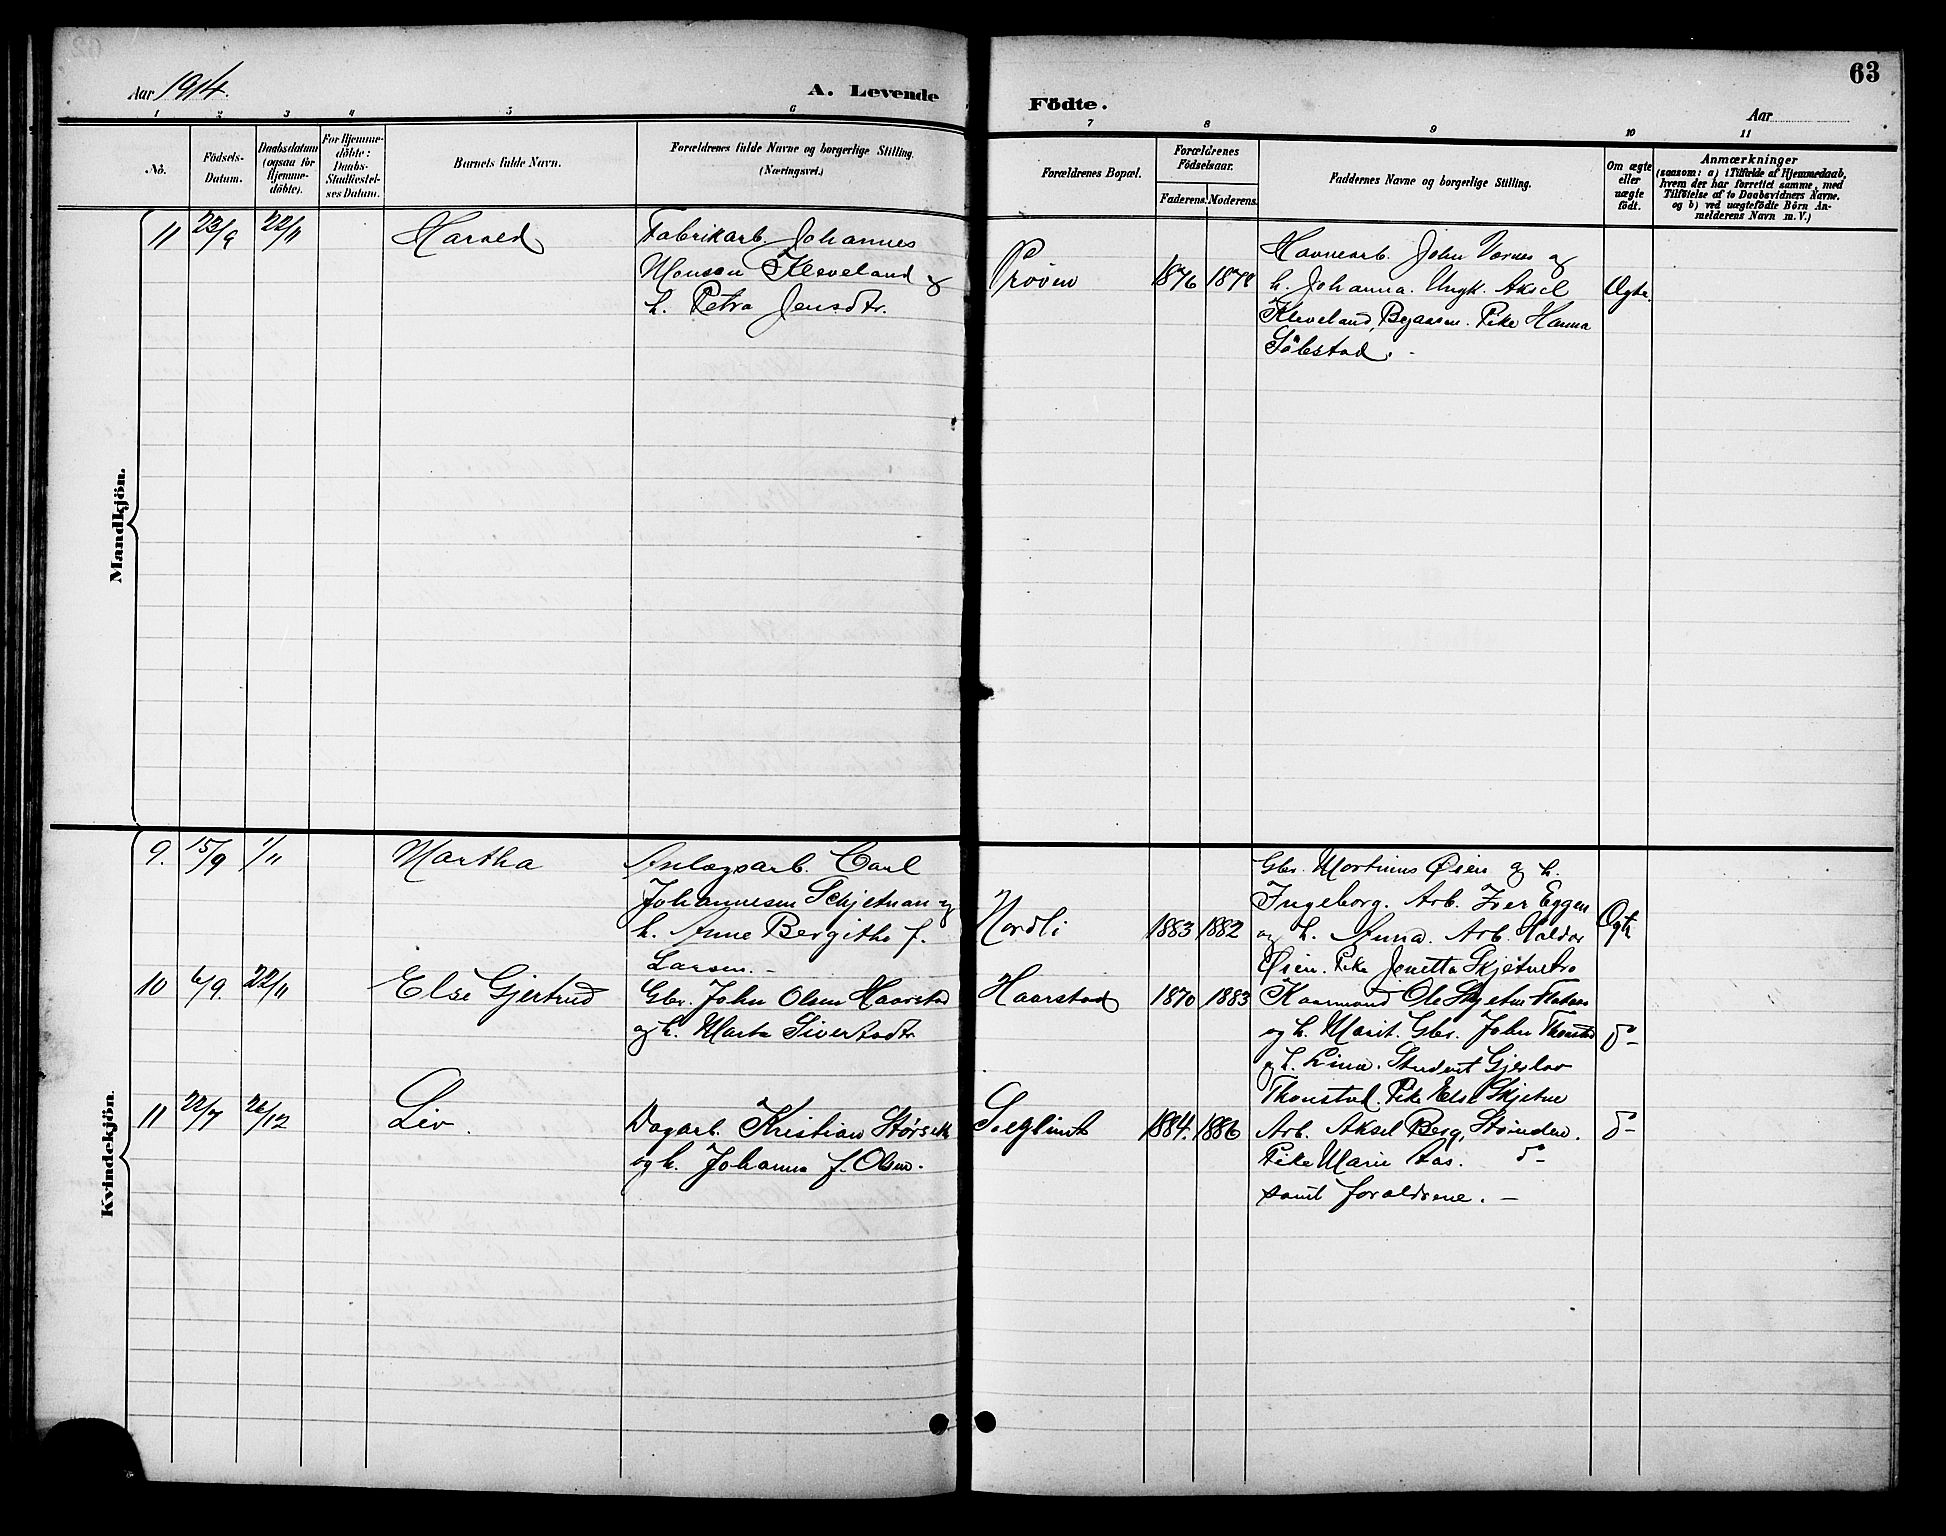 Aar 1914.
A. Levende
Födte.
Aar
63
1 2 3 4 5 6
7 8 9 10 11
No.
Födsels-
Datum.
Daabsdatum
(ogsaa for
Hjemme-
döbte).
For Hjemme-
döbte:
Daabs-
Stadfæstel-
ses Datum.
Barnets fulde Navn.
Forældrenes fulde Navne og borgerlige Stilling.
(Næringsvei.)
Forældrenes Bopæl.
Forældrenes
Födselsaar.
Faderens. Moderens.
Faddernes Navne og borgerlige Stilling.
Om ægte
eller
uægte
födt.
Anmærkninger
(saasom: a) i Tilfælde af Hjemmedaab,
hvem der har forrettet samme, med
Tilföielse af to Daabsvidners Navne.
og b) ved uægtefödte Börn An-
melderens Navn m. V.)
Mandkjön.
11 23/9 22/11 Harald
Fabrikarb. Johannes
Monsen Kleveland og
h. Petra Jensdtr.
Prøven 1876 1878
Havnearb. John Vornes og
h. Johanna. Ungk. Aksel
Kleveland, Byaasen. Pike Hanna
Sölestad.
Ægte.
Kvindekjön.
9. 15/9 1/11 Martha
Anlægsarb. Carl
Johannesen Schjetnan og
h. Anne Bergitha f.
Larsen. -
Nordli 1883 1882
Gbr. Martinus Øien og h.
Ingeborg. Arb. Iver Eggen
og h. Anna. Arb. Haldor
Øien. Pike Jenetta Skjetnetro
Ægte
10 6/9. 22/11 Else Gjertrud
Gbr. John Olsen Haarstad
og h. Marta Sivertsdtr
Haarstad 1870 1883
Kaarmand Ole Skjetne
og h. Marit. Gbr. John Thonstad
og h. Lina. Student Gjerlov
Thonstad. Pike Else Skjetne
do -
11 22/7 26/12 Liv.
Dagarb. Kristian
og h. Johanna f. Olsen.
Solglimt 1884. 1886
Arb. Aksel Berg, Strinden.
Pike Marie Aas. do -
samt forældrene. -
do -